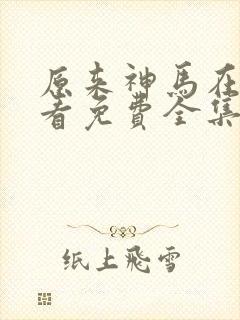 原来神马在
看免费全集
纸上飛雪